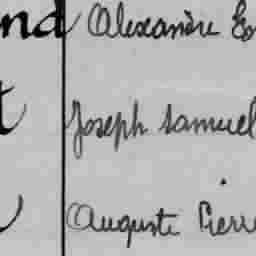 nd Alexandre
t Joseph Samuel
Auguste Pierre